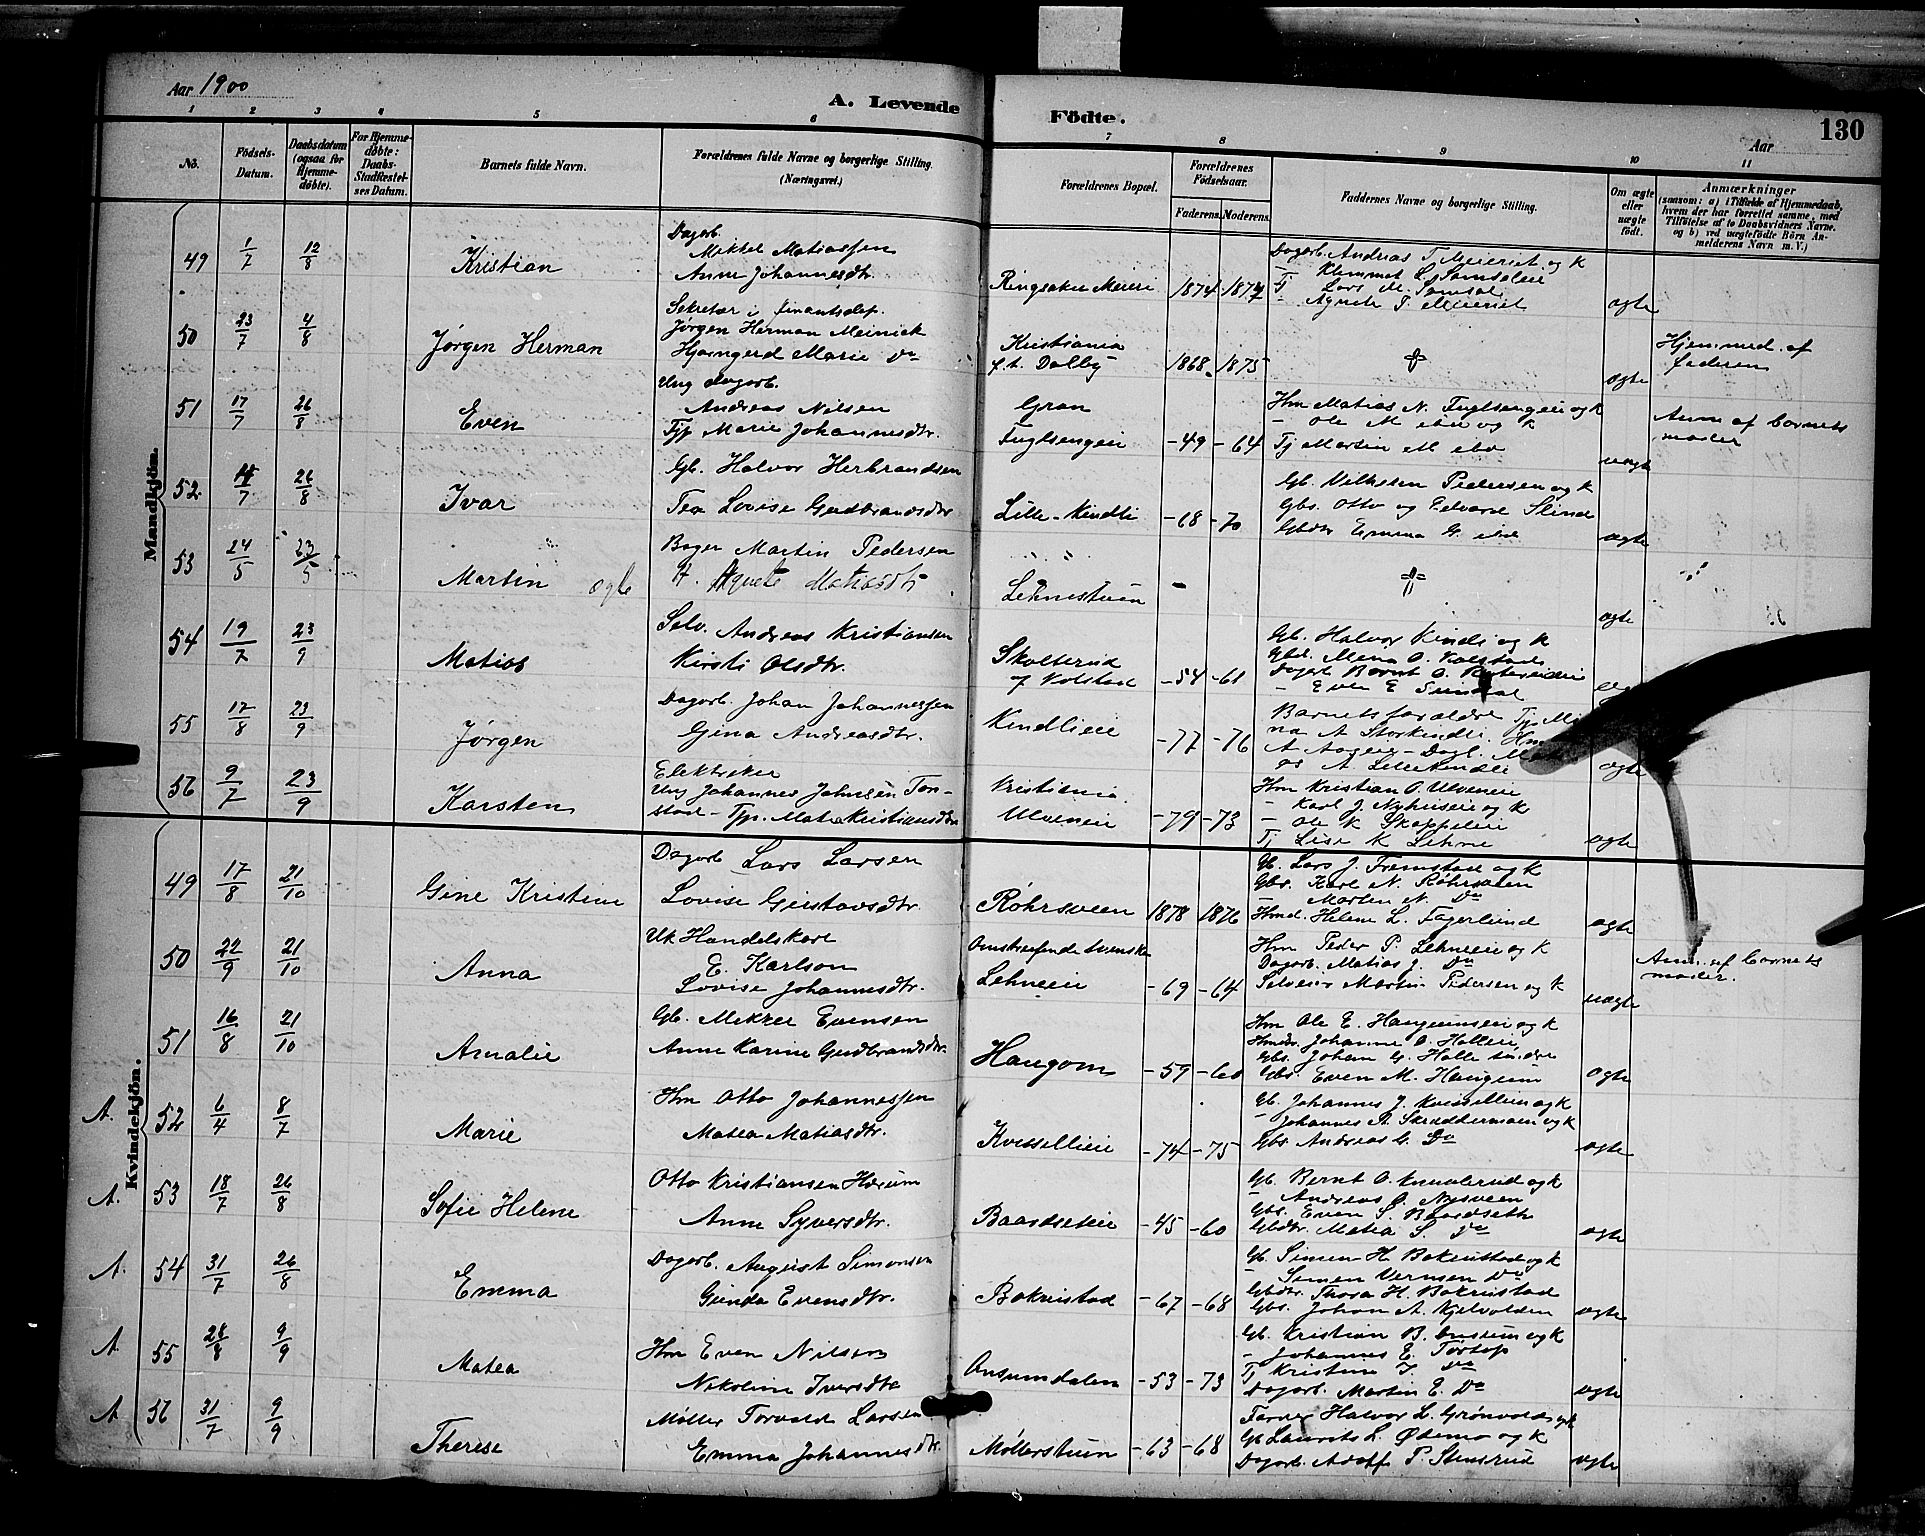 Aar 1900
A. Levende Födte.
130
Aar
1 2 3 4 5 6 7 8 9 10 11
No.
Födsels-Datum.
Daabsdatum (ogsaa for Hjemmedøbte).
For Hjemmedøbte: Daabs-Stadfæstelses Datum.
Barnets fulde Navn.
Forældrenes fulde Navne og borgerlige Stilling. (Næringsvei.)
Forældrenes Bopæl.
Forældrenes Födselsaar.
Faderens. Moderens.
Faddernes Navne og borgerlige Stilling.
Om ægte eller uægte födt.
Anmærkninger
(saasom: a) i Tilfælde af Hjemmedaab, hvem der har forrettet samme, med Tilföielse af to Daabsvidners Navne. og b) ved uægtefödte Börn Anmelderens Navn m. V.)
Mandkjön.
49 1/7 12/8 Kristian
Dagarb. Mikkel Matiassen
Anne Johannesdtr.
Ringsaker Meieri 1874 1877
Dagarb. Andreas T. Meieriet og K
Lars M. Samsal
Agnete T. Meieriet
ægte
50 23/7 4/8 Jørgen Herman
Sekretær i finantsdep.
Jørgen Herman Meinick
Hjørngerd Marie Do
Kristiania
f.t. Dalby 1868 1875
ægte
Hjemmed. af faderen
51 17/7 26/8 Even
Ung dagarb.
Andreas Nilsen
Tjp Marie Johannesdtr.
Gran
Fuglsengeie -49 -64
Hm Matias N. Fuglsengeie og K
- Ole M ibid og K
Tj Martin M ibd
uægte
Anm af barnets moder
52. 14/7 26/8 Ivar
Gb. Halvor Herbrandsen
Tea Lovise Gudbrandsdtr
Lille-Kindli -68 -70
Gb. Vilhelm Pedersen og K
Gbs. Otto og Edvard Slind
Gbdtr Emma G. ibd
ægte
53 24/5 23/5 Martin ægte
Bager Martin Pedersen
H. Agnete Matiasdtr
Lehnestuen -
ægte
54 19/7 23/9 Matias
Selv. Andreas Kristiansen
Kirsti Olsdtr.
Skolterud
af Kolstad -54 -61
Gb. Halvor Kindli og K
Gbd. Mina O. Kolstad
Dagarb Bernt O.
- Even E Sundal
55 12/8 23/9 Jørgen
Dagarb. Johan Johannessen
Gina Andreasdtr.
Kindlieie -77 -76
Barnets forældre Tj. Mi
na A Storkindli. Hm
A Aageie - Dagl. Ma
as A Lillekindli
ægte
56 9/7 23/9 Karsten
Elektriker
Ung Johannes Johnsen Ton-
stad - Tjp. Mate Kristiansdtr
Kristiania
Ulveneie -79 -73
Hm Kristian O. Ulveneie
- Karl J. Nyhuseie og K
- Ole K Skappeleie
Tj Lise K Lehne
ægte
Kvindekjön.
49 17/8 21/10 Gine Kristine
Dagarb Lars Larsen
Lovise Gustavsdtr.
Röhrsveen 1878 1876
Gb. Lars J. Fremstad og K
Gbs. Karl N. Röhrsveen
- Marten N. Do
Hmd. Helene L. Fagerlund
ægte
50 22/9 21/10 Anna
Uk Handelskarl
E. Karlson
Lovise Johannesdtr.
Omstreifende svenske
Lehneeie -69 -64
Hm Peder P. Lehneeie og K
Dagarb. Matias J. Do
Selveier Martin Pedersen og K
uægte
Anm. af barnets moder.
51 16/8 21/10 Amalie
Gb. Mikkel Evensen
Anne Karine Gudbrandsdtr.
Haugom -59 -60
Hm Ole E. Haugumseie og K
Hmdtr. Johanne O. Halleie
Gbs. Johan G. Halle søndre
Gbs. Even M. Haugum
ægte
A. 52 6/4 8/7 Marie
Hm Otto Johannessen
Matea Matiasdtr.
Kvisellieie -74 -75
Gb. Johannes J. Kvisellieie og K
- Johannes A. Skræddermoen og K
Gbs. Andreas G. Do
ægte
A. 53 18/7 26/8 Sofie Helene
Otto Kristiansen Hærum
Anne Syversdtr.
Baardseteie -45 -60
Gb. Bernt O. Knuvlerud og K
- Andreas O. Nysveen
Gbs. Even S. Baardseth
Gbdtr. Matea S. Do
ægte
A. 54 31/7 26/8 Emma
Dagarb. August Simonsen
Gunda Evensdtr.
Bakristad -67 -68
Gb. Simen H. Bakristad og K
- Simen Vernsen Do
Gbdtr. Thora H. Bakristad
Gbs. Johan A. Kjelvolden
ægte
A 55 28/8 9/9 Matea
Hm Even Nilsen
Nikoline Iversdtr
Onsumdalen -53 -73
Gb. Kristian B. Onsum og K
- Johannes E. Tortop
Tj Kristine J. Do
Dagarb. Martin E. Do
ægte
A 56 31/7 9/9 Therese
Møller Torvald Larsen
Emma Johannesdtr.
Møllerstuen -63 -68
Farver Halvor L. Grønvold og K
Gb Laurits L. Ødemo og K
Dagarb. Adolf P. Stensrud
ægte